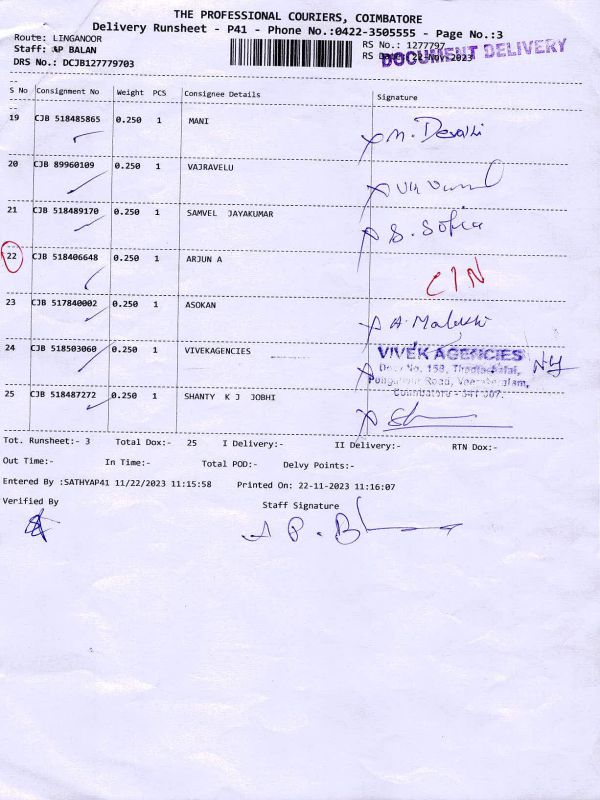 THE PROFESSIONAL COURIERS, COIMBATORE
Delivery Runsheet - P41 - Phone No.:0422-3505555 - Page No.:3
Route: LINGANOOR
RS No.: 1277797
Staff: AP BALAN
RS Date: 22-Nov-2023
DOCUMENT DELIVERY
DRS No.: DCJB127779703
S No Consignment No Weight PCS Consignee Details Signature
19 CJB 518485865 0.250 1 MANI
20 CJB 89960109 0.250 1 VAJRAVELU
21 CJB 518489170 0.250 1 SAMVEL JAYAKUMAR S. Sofia
22 CJB 518406648 0.250 1 ARJUN A CIN
23 CJB 517840002 0.250 1 ASOKAN
24 CJB 518503060 0.250 1 VIVEKAGENCIES
VIVEK AGENCIES
Door No. 158,
Road,
Coimbatore - 641 007.
25 CJB 518487272 0.250 1 SHANTY K J JOBHI
Tot. Runsheet:- 3 Total Dox:- 25 I Delivery:- II Delivery:- RTN Dox:-
Out Time:- In Time:- Total POD:- Delvy Points:-
Entered By :SATHYAP41 11/22/2023 11:15:58 Printed On: 22-11-2023 11:16:07
Verified By Staff Signature